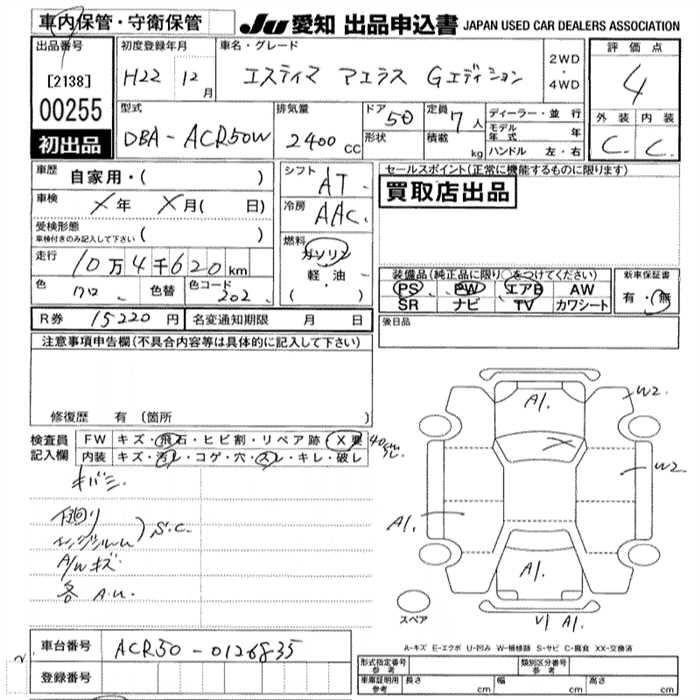 車内保管・守衛保管
JU 愛知 出品申込書 JAPAN USED CAR DEALERS ASSOCIATION
出品番号
[2138]
00255
初出品
初度登録年月
H22 12月
車名・グレード
エスティマ アエラス Gエディション
2WD・4WD
評価点
4
外装 内装
C. C.
型式
DBA-ACR50W
排気量
2400 CC
ドア 5
形状
定員 7人
積載 kg
ディーラー・並行
モデル年式 年
ハンドル 左・右
車歴 自家用・( )
車検 X年 X月( 日)
受検形態
車検付きのみ記入して下さい ( )
走行 10万4千620km
色 クロ 色替 色コード 202
シフト AT
冷房 AAC
燃料
ガソリン
軽・油
( )
セールスポイント(正常に機能するものに限ります)
買取店出品
装備品(純正品に限り○をつけてください)
PS PW エアB AW
SR ナビ TV カワシート
新車保証書
有・無
R券 15220円 名変通知期限 月 日
後日品
注意事項申告欄(不具合内容等は具体的に記入して下さい)
修復歴 有 (箇所 )
検査員記入欄
FW キズ・飛石・ヒビ割・リペア跡・X要 40cm
内装 キズ・汚レ・コゲ・穴・スレ・キレ・破レ
キバミ
下廻り
エンジンルーム
S.C.
A/Wキズ
各 A.U.
A1.
W2
W2
A1.
A1.
U1 A1.
スペア
A-キズ E-エクボ U-凹み W-補修跡 S-サビ C-腐食 XX-交換済
車台番号 ACR50-0126835
登録番号
形式指定番号
参考
類別区分番号
参考
車庫証明用
参考
長さ cm 幅 cm 高さ cm